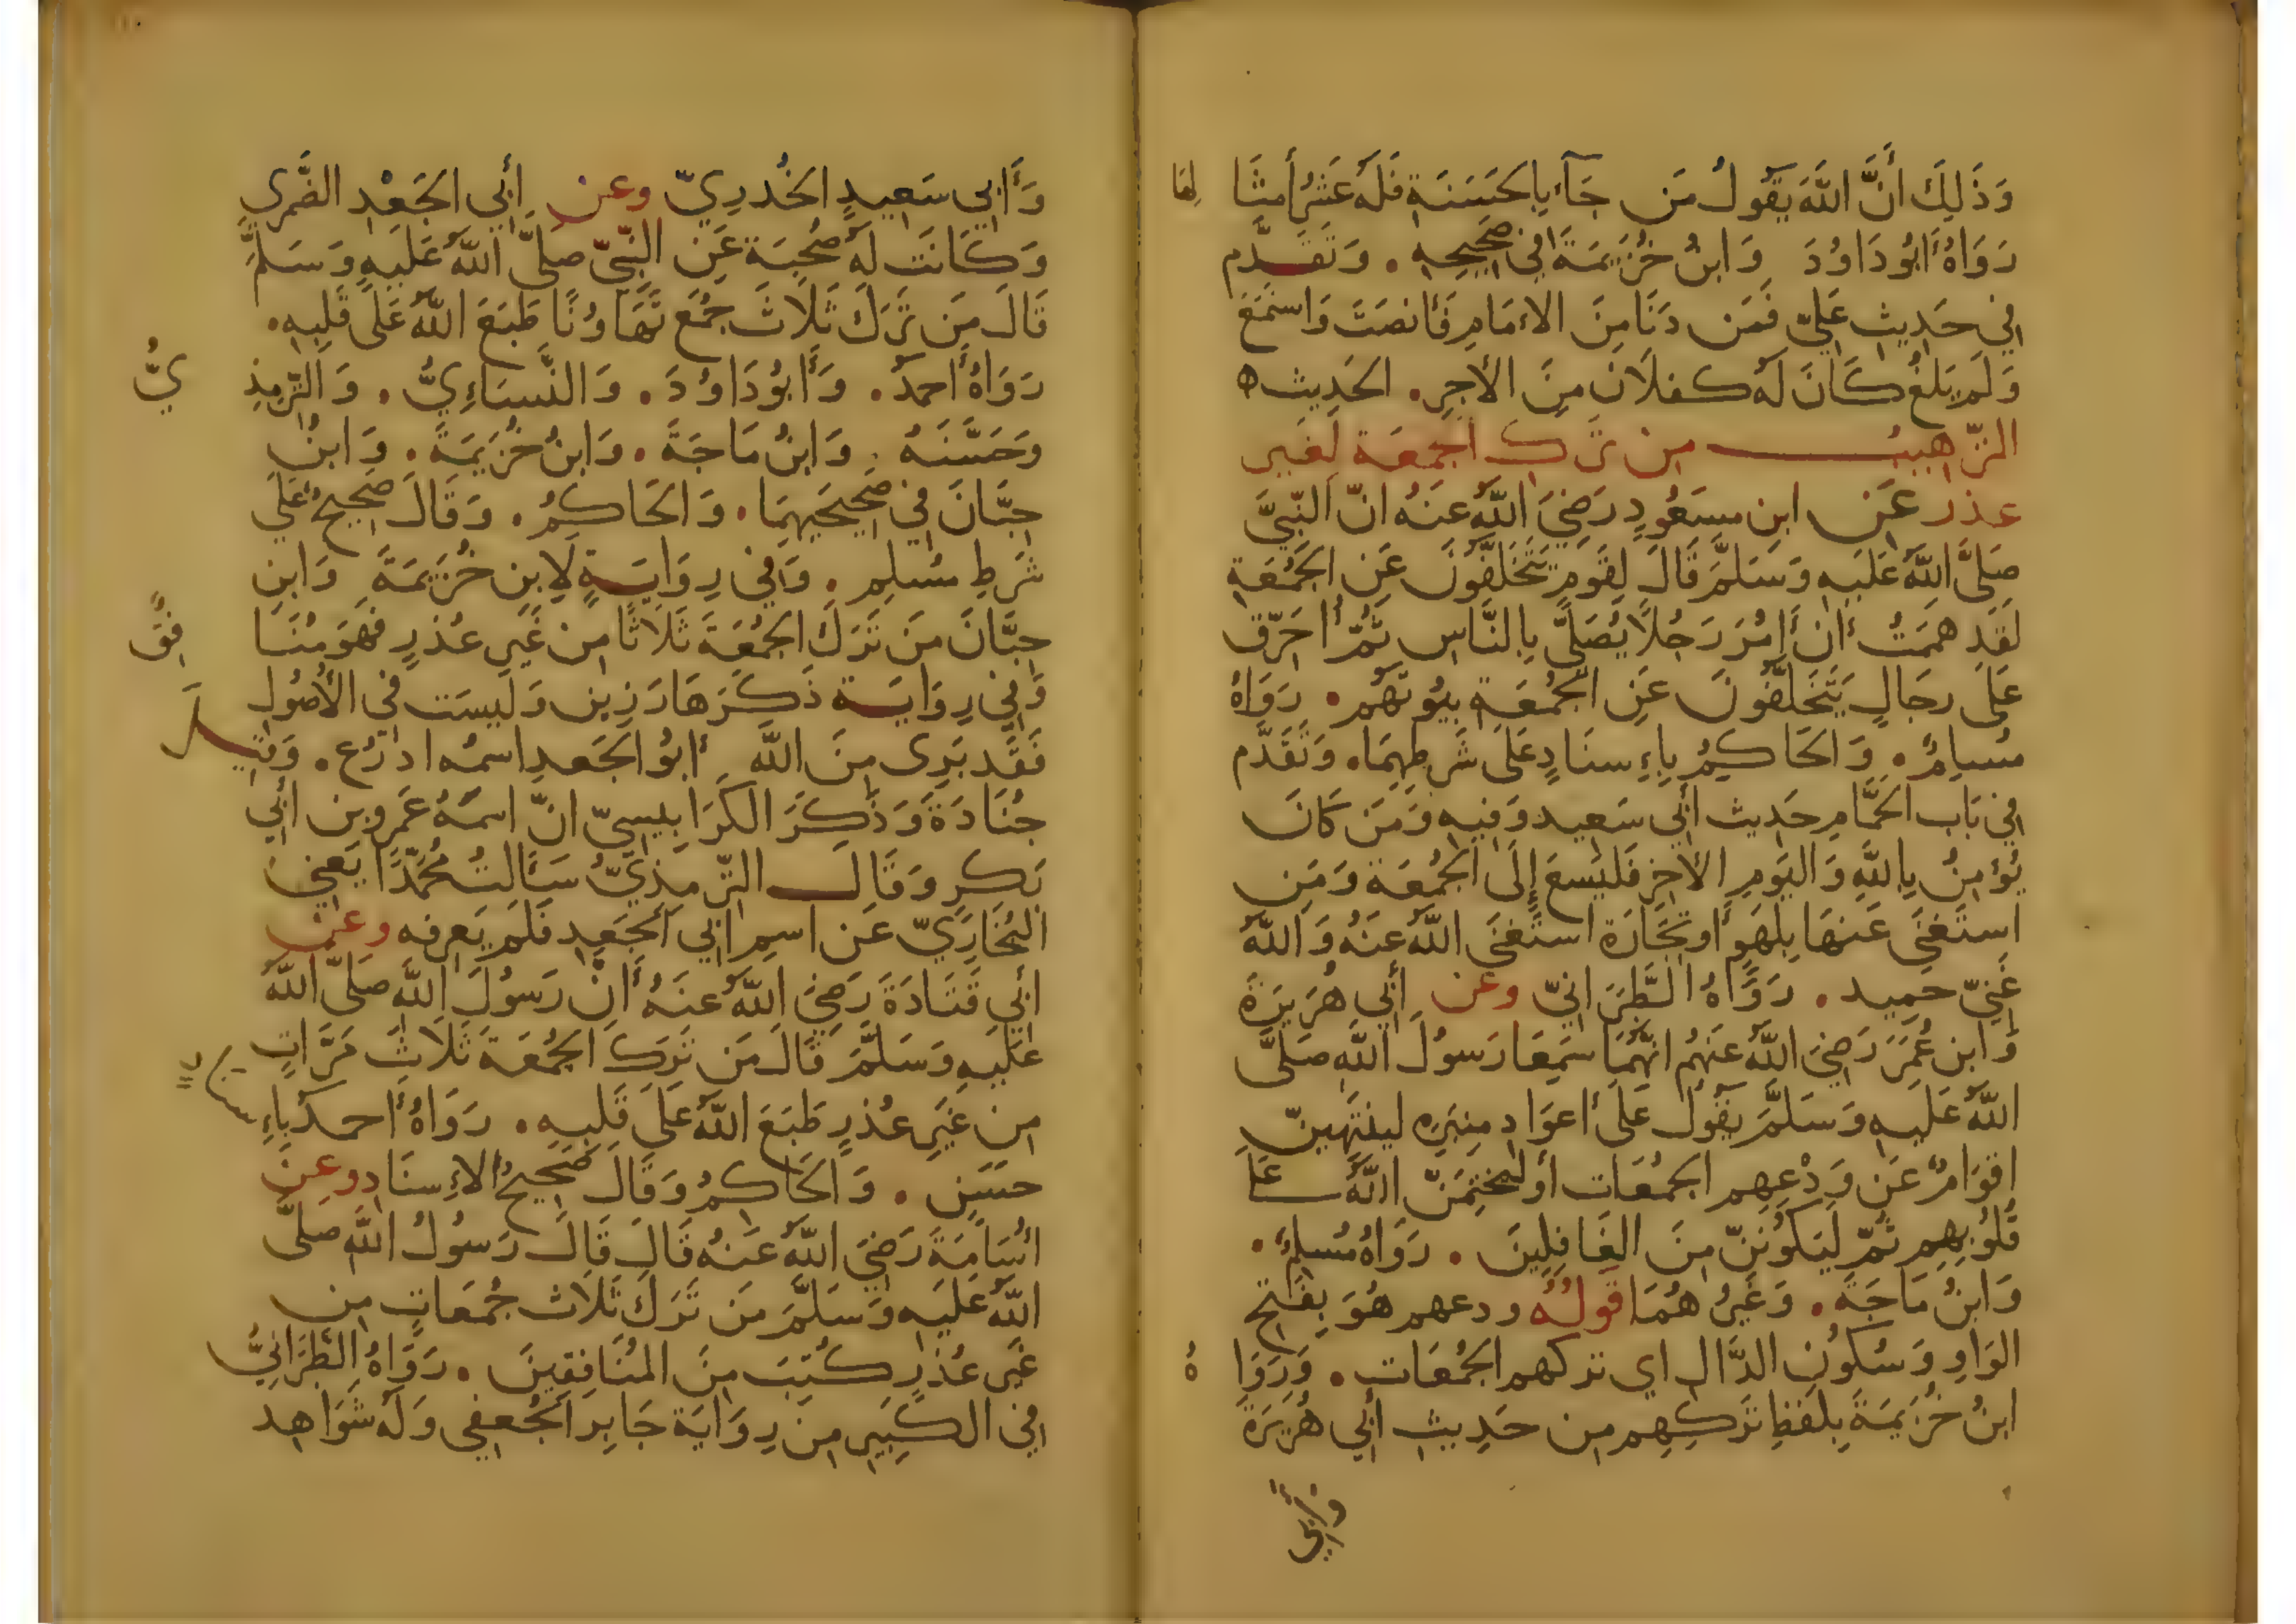 وَذَلِكَ أَنَّ اللَّهَ يَقُولُ مَن جَآءَ بِالحَسَنَةِ فَلَهُ عَشْرُ أَمثَا لِهَا
رَوَاهُ أَبُو دَاوُدَ وَابنُ خُزَيمَةَ فِي صَحِيحِهِ . وَتَقَدَّم
فِي حَدِيثِ عَلِيّ فَمَن دَنَا مِنَ الاءمَامِ فَأنصَتَ وَاستَمَعَ
وَلَم يَلغُ كَانَ لَهُ كفلَانِ مِنَ الأَجرِ . الحَدِيث ه
التّرهيبُ من تَرك الجمعَة لِغَير
عذر عَن ابن مسعُودٍ رَضِيَ اللَّهُ عَنهُ انّ النَّبِيَّ
صَلَّى اللَّهُ عَلَيهِ وَسَلَّمَ قَالَ لِقَومٍ يَتَخَلَّفُونَ عَنِ الجُمُعَةِ
لَقَد هَمَمتُ أن أَامُرَ رَجُلًا يُصَلِّي بِالنَّاسِ ثُمَّ أُحَرّق
عَلَى رِجَالٍ يَتَخَلَّفُونَ عَنِ الجُمُعَةِ بِيُوتَهُم . رَوَاهُ
مُسلِمٌ . وَالحَاكِمُ بِاءِسنَادٍ عَلَى شَرطِهِمَا . وَتَقَدَّم
فِي بَاب الحَمَّامِ حَدِيث أَبِي سَعِيد وَفِيهِ وَمَن كَانَ
يُؤمِنُ بِاللَّهِ وَاليَومِ الأَخِرِ فَليَسعَ إِلَى الجُمُعَة وَمَنِ
استَغنَى عَنهَا بِلَهوٍ أَو تِجَارَة استَغنَى اللَّهُ عَنهُ وَاللَّهُ
غَنِيّ حمِيد . رَوَاهُ الطَّبَرَانِيّ وعن أَبِي هُرَيرَةَ
وَابن عُمَرَ رَضِيَ اللَّهُ عَنهُم انّهُمَا سَمِعَا رَسُولَ اللَّهِ صَلَّى
اللَّهُ عَلَيهِ وَسَلَّمَ يَقُولُ عَلَى أعوَادِ مِنبَرِه لينتَهِينّ
اقوَامٌ عَن وَدْعِهِم الجُمُعَات أَو ليَختِمَنّ اللَّهُ عَلَى
قُلُوبِهِم ثُمَّ لَيَكُونُنَّ مِنَ الغَافِلِينَ . رَوَاهُ مُسلِمٌ .
وَابنُ مَاجَةَ . وَغَيرُ هُمَا قَولُهُ ودعهم هُوَ بِفَتحِ
الوَاوِ وَسُكُونِ الدَّال اي تركهم الجُمُعَات . وَرَوَا هُ
ابنُ خُزَيمَةَ بِلَفظِ تَركِهِم مِن حَدِيثِ أَبِي هُرَيرَةَ
وَأَبِي
وَأَابِي سَعِيدٍ الخُدرِيّ وعن أَبِي الجَعْدِ الضَّمرِي
وَكَانَت لَهُ صُحبَة عَنِ النَّبِيّ صَلَّى اللَّهُ عَلَيهِ وَسَلَّمَ
قَالَ مَن تَرَكَ ثَلَاثَ جُمَعٍ تَهَاوُنًا طَبَعَ اللَّهُ عَلَى قَلبِهِ .
رَوَاهُ أَحمدُ . وَأَبُو دَاوُدَ . وَالنَّسَاءِيُّ . وَالتّرمِذِ يُّ
وَحَسَّنَهُ . وَابنُ مَاجَةَ . وَابنُ خُزَيمَةَ . وَابنُ
حِبَّانَ فِي صَحِيحَيهِمَا . وَالحَاكِمُ . وَقَالَ صَحِيحٌ عَلَى
شَرطِ مُسْلِمٍ . وَفِي رِوَايَةٍ لِابنِ خُزَيمَةَ وَابنِ
حِبَّانَ مَن تَرَكَ الجُمُعَةَ ثَلَاثًا مِن غَيرِ عُذرٍ فَهُوَ مُنَا فِقٌ
وَفِي رِوَايَة ذَكَرَهَا رَزِين وَلَيسَت فِي الأُصُولِ
فَقَد بَرِى مِنَ اللَّه أَبُو الجَعدِ اسمُه ادرَع . وَقِيلَ
جُنَادَة وَذَكَرَ الكَرَابِيسِيّ انّ اسمَهُ عَمرو بن أَبِي
بَكرٍ وَقَالَ التّرمذِيُّ سَأَلتُ مُحَمَّدًا يَعنِي
البُخَارِيّ عَنِ اسمِ ابِي الجَعدِ فَلَم يَعرِفه وعن
أَبِي قَتَادَةَ رَضِيَ اللَّهُ عَنهُ أَنّ رَسُولَ اللَّهِ صَلَّى اللَّهُ
عَلَيهِ وَسَلَّمَ قَالَ مَن تَرَكَ الجُمُعَةَ ثَلَاثَ مَرَّاتٍ
مِن غَيرِ عُذرٍ طَبَعَ اللَّهُ عَلَى قَلبِهِ . رَوَاهُ أَحمدُ بِاءِ سنَادٍ
حسَنٍ . وَالحَاكِمُ وَقَالَ صَحِيحُ الاءِسنَادِ وعن
أُسَامَةَ رَضِيَ اللَّهُ عَنهُ قَالَ قَالَ رَسُولُ اللَّهِ صَلَّى
اللَّهُ عَلَيهِ وَسَلَّمَ مَن تَرَكَ ثَلَاث جُمُعَاتٍ مِن
غَيرِ عُذرٍ كُتِبَ مِنَ المُنَافِقِينَ . رَوَاهُ الطَّبَرَانِيُّ
فِي الكَبِيرِ مِن رِوَايَة جَابِر الجُعفِي وَلَهُ شَوَاهِد